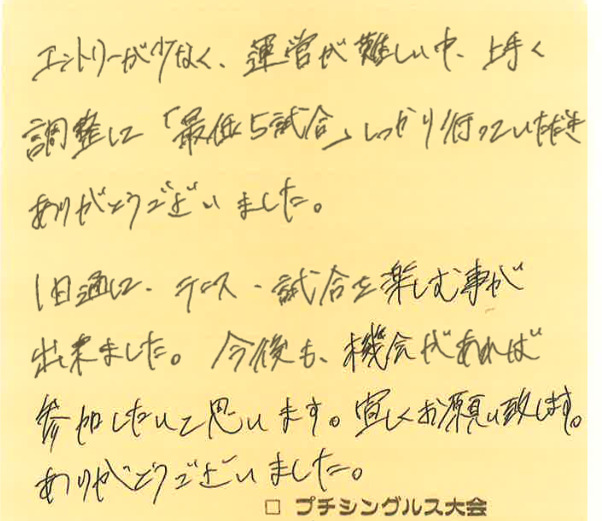 エントリーが少なく、運営が難しい中、上手く
調整して「最低5試合」しっかり行っていただき
ありがとうございました。
1日通して、テニス・試合を楽しむ事が
出来ました。今後も、機会があれば
参加したいと思います。宜しくお願い致します。
ありがとうございました。
□ プチシングルス大会